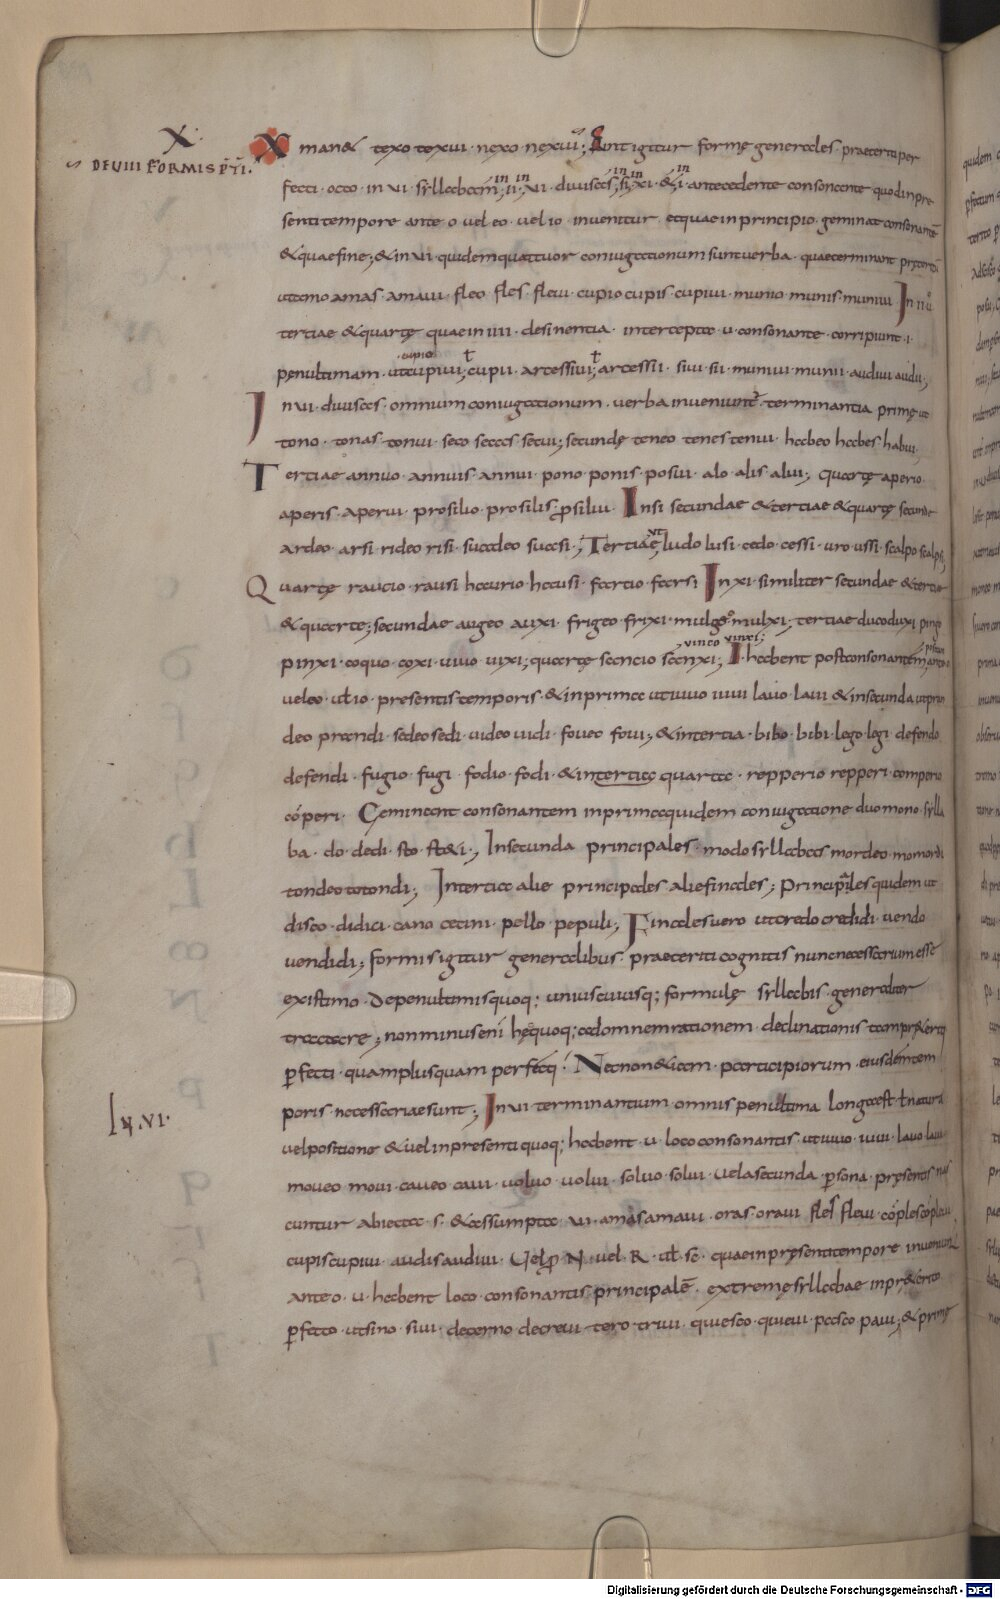 X
DE VIIII FORMIS PTI.
X man& texo texui · nexo nexiui; Sunt igitur formę generales praeteriti per
fecti · octo · in vi · syllabam; in ii; in vi · diuisas; in si; in xi · & in i · antecedente consonante quod in pre
senti tempore ante · o · uel eo · uel io · inuenitur · et quae in principio · geminat consonantē
& quae fine; & in vi · quidem quattuor coniugationum sunt uerba · quae terminant pręteriti
ut amo amas · amaui · fleo · fles · fleui · cupio cupis · cupiui · munio · munis · muniui · In ii u
tertiae & quartę quae in iiii · desinentia · intercepta · u · consonante · corripiunt · i ·
penultimam · ut cupio cupiui; ł cupii · arcessiui; ł arcessii · siui · sii · muniui · munii · audiui audii;
In ui · diuisas · omnium coniugationum · uerba inueniunt · terminantia primę ut
tono · tonas · tonui · seco secas secui; secundę teneo tenes tenui · habeo habes habui,
Tertiae annuo · annuis · annui · pono · ponis · posui · alo · alis · alui; Quartę aperio
aperis · aperui · prosilio · prosilis · prosilui · In si secundae & tertiae & quartę secundę
ardeo · arsi · rideo risi · suadeo suasi; Tertiae, ut ludo lusi · cedo · cessi · uro · ussi · scalpo scalpsi,
Quartę raucio · rausi haurio hausi · farcio · farsi In xi · similiter secundae & tertiae
& quarte; secundae augeo auxi · frigeo · frixi · mulgeo mulxi; tertiae duco duxi pingo
pinxi · coquo · coxi · uiuo uixi; quartę sancio sanxi; uincio uinxi; I · habent post consonantem ante · o
uel eo · uł io · presentis temporis · & in prima ut iuuo iuui lauo · laui & in secunda ut pran
deo prandi · sedeo sedi · uideo uidi · foueo foui; & in tertia · bibo · bibi · lego · legi · defendo
defendi · fugio · fugi · fodio · fodi · & in tertia quarta · repperio repperi · comperio
cōperi · Geminant consonantem in prima quidem coniugatione duo mono · sylla
ba · do · dedi · sto · st&i; In secunda principales · modo syllabas mordeo · momordi
tondeo totondi; In tertia alie principales alie finales; Principales quidem ut
disco · didici · cano cecini · pello pepuli; Finales uero ut credo credidi · uendo
uendidi; formis igitur generalibus praeteriti cognitis nunc necessarium esse
existimo · De penultimis quoq; uniuscuiusq; formulę syllabis · generaliter
tractare; non minus eni hęc quoq; ad omnem rationem declinationis tam pr&eriti
pfecti · quam plusquam perfecti · Necnon & iam participiorum · eiusdem tem
poris · necessariae sunt; In ui terminantium omnis penultima longa est ł natura
uel positione & uel in presenti quoq; habent · u · loco consonantis · ut iuuo · iuui · lauo laui
moueo moui · caueo caui · uoluo · uolui · soluo · solui · uel a secunda · psona · pręsentis nas
cuntur abiecta · s · & assumpta · ui · amas amaui · oras · oraui fles fleui · cōples cōpleui
cupis cupiui · audis audiui · Uel p N · uel · R · uł · sc · quae in pręsenti tempore inueniunt
ante o · u · habent loco · consonantis principalē · extremę syllabae in pr&erito
pfecto · ut sino · siui · decerno decreui · tero · triui · quiesco · quieui · pasco paui; & primę
In · VI ·
Digitalisierung gefördert durch die Deutsche Forschungsgemeinschaft - DFG